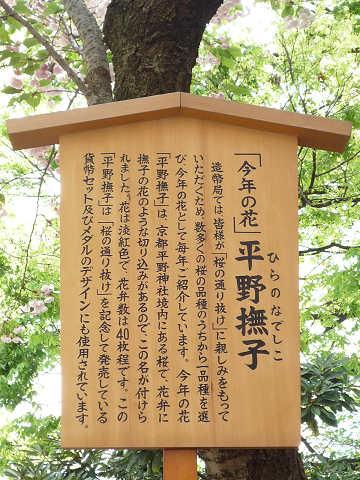 「今年の花」平野撫子
ひらのなでしこ
造幣局では、皆様が「桜の通り抜け」に親しみをもって
いただくため、数多くの桜の品種のうちから一品種を選
び、今年の花として毎年ご紹介しています。今年の花
「平野撫子」は、京都平野神社境内にある桜で、花弁に
撫子の花のような切り込みがあるので、この名が付けら
れました。花は淡紅色で、花弁数は40枚程です。この
「平野撫子」は「桜の通り抜け」を記念して発売している
貨幣セット及びメダルのデザインにも使用されています。